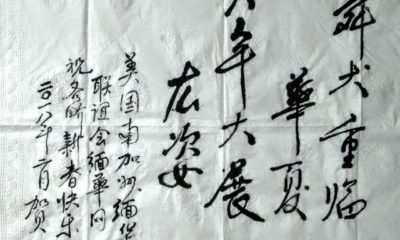 犬重临
華夏
年大展
姿
美国南加州缅侨
联谊会缅華同
祝各新春快乐
二〇一八年二月贺